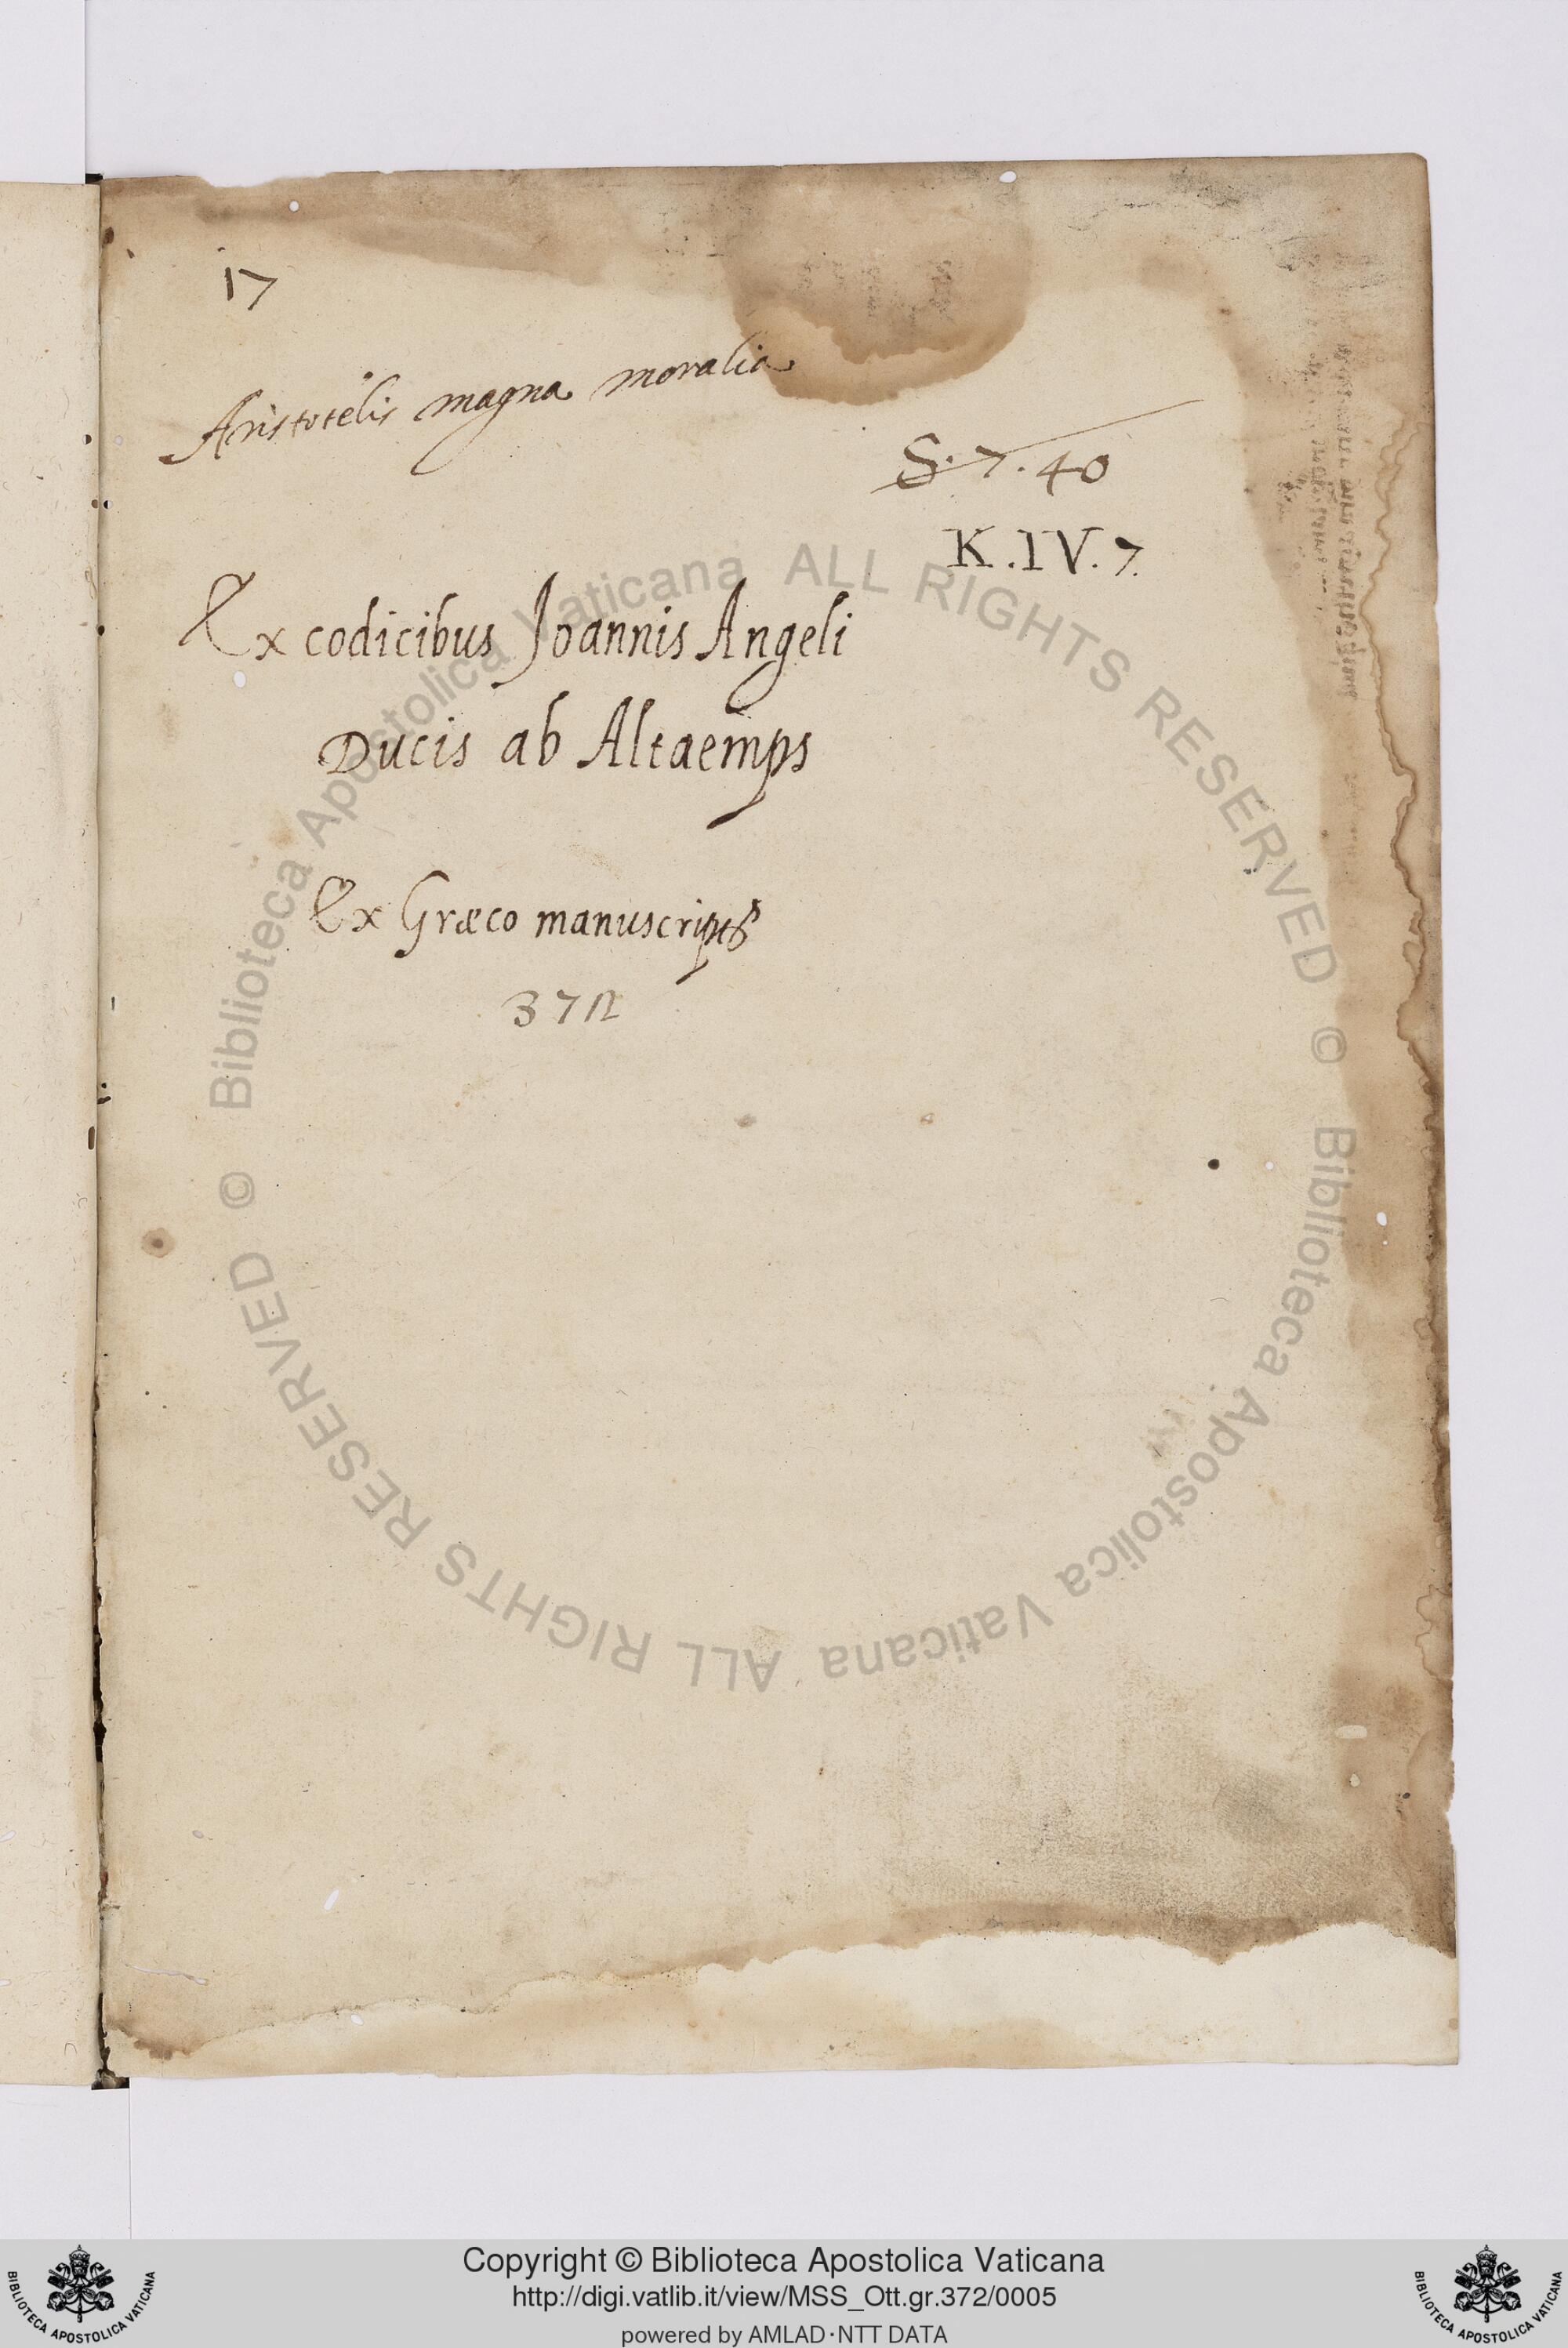 17
Aristotelis magna moralia
S. 7. 40
K.IV.7.
Ex codicibus Joannis Angeli
Ducis ab Altaemps
Ex Græco manuscripto
372
© Biblioteca Apostolica Vaticana ALL RIGHTS RESERVED © Biblioteca Apostolica Vaticana ALL RIGHTS RESERVED
Copyright © Biblioteca Apostolica Vaticana
http://digi.vatlib.it/view/MSS_Ott.gr.372/0005
powered by AMLAD·NTT DATA
BIBLIOTECA APOSTOLICA VATICANA
BIBLIOTECA APOSTOLICA VATICANA